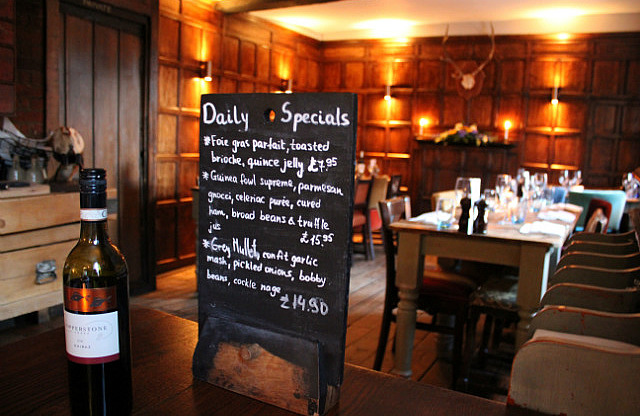 PRIVATE
Daily Specials
*Foie gras parfait, toasted
brioche, quince jelly £7.95
*Guinea fowl supreme, parmesan
gnocci, celeriac purée, cured
ham, broad beans & truffle
jus £15.95
*Grey Mullet, confit garlic
mash, pickled onions, bobby
beans, cockle nage
£14.90
COPPERSTONE
SHIRAZ